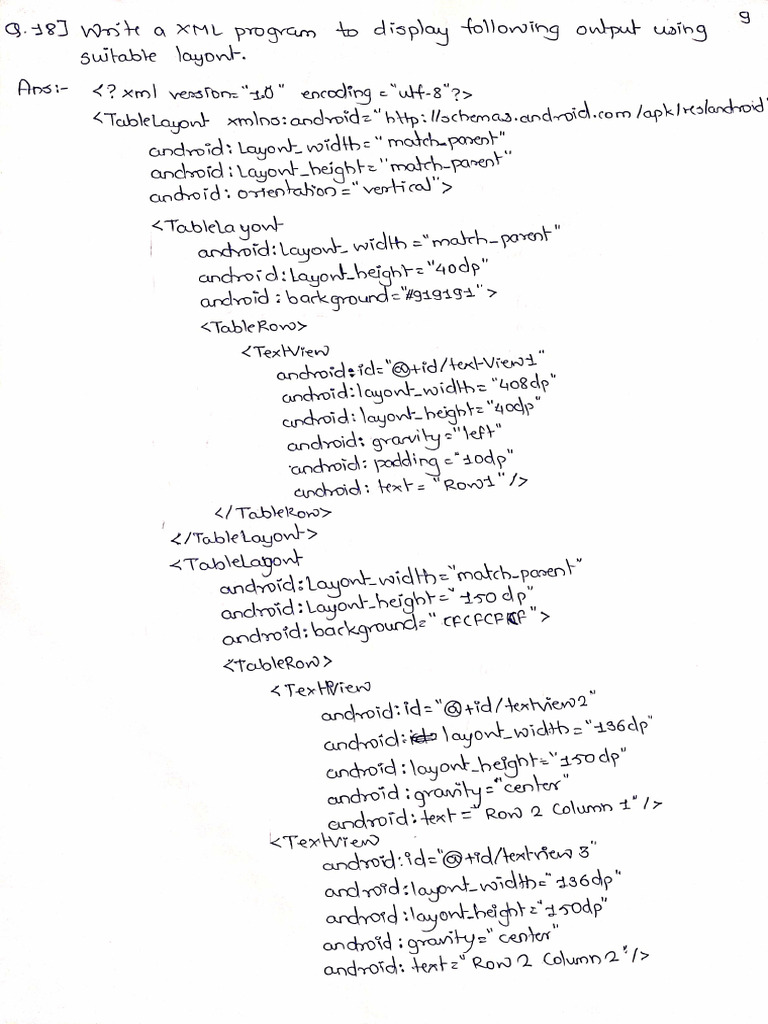 9
Q.18] Write a XML program to display following output using
suitable layout.
Ans:- <?xml version="1.0" encoding="utf-8"?>
<TableLayout xmlns:android="http://schemas.android.com/apk/res/android"
android:Layout_width="match_parent"
android:Layout_height="match_parent"
android:orientation="vertical">
<TableLayout
android:Layout_width="match_parent"
android:Layout_height="40dp"
android:background="#919191">
<TableRow>
<TextView
android:id="@+id/textView1"
android:layout_width="408dp"
android:layout_height="40dp"
android:gravity="left"
android:padding="10dp"
android:text="Row1"/>
</TableRow>
</TableLayout>
<TableLayout
android:Layout_width="match_parent"
android:Layout_height="150dp"
android:background=">
<TableRow>
<TextView
android:id="@+id/textview2"
android:layout_width="136dp"
android:layout_height="150dp"
android:gravity="center"
android:text="Row 2 Column 1"/>
<TextView
android:id="@+id/textview3"
android:layout_width="136dp"
android:layout_height="150dp"
android:gravity="center"
android:text="Row 2 Column 2"/>